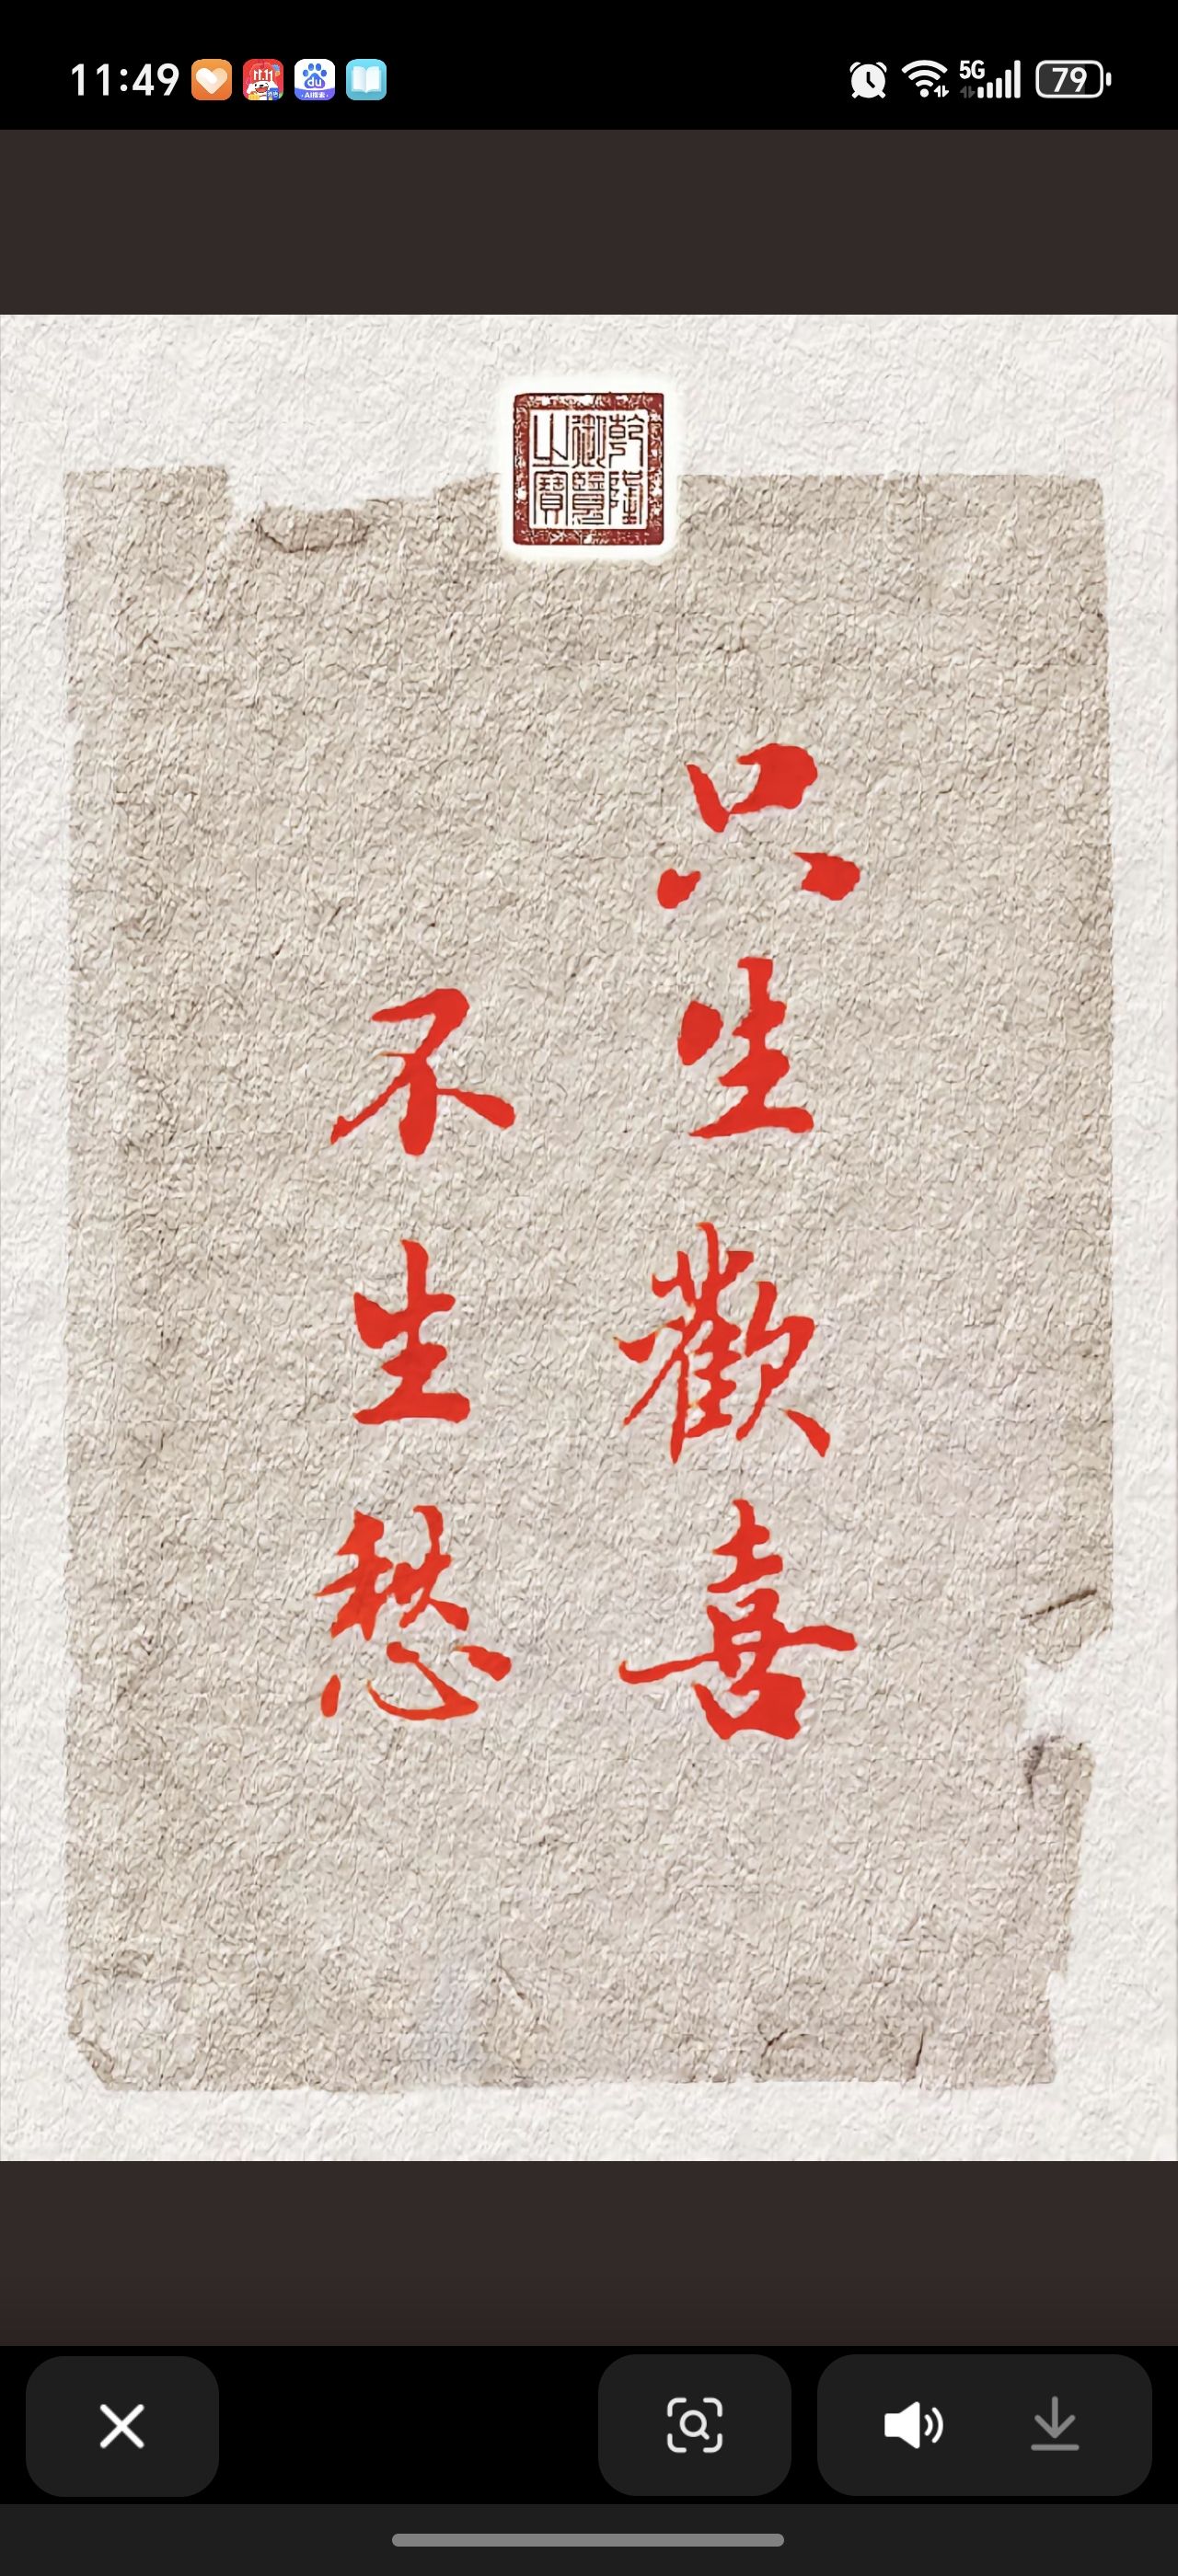 11:49
5G
79
乾隆
御覽
之寶
只生歡喜
不生愁